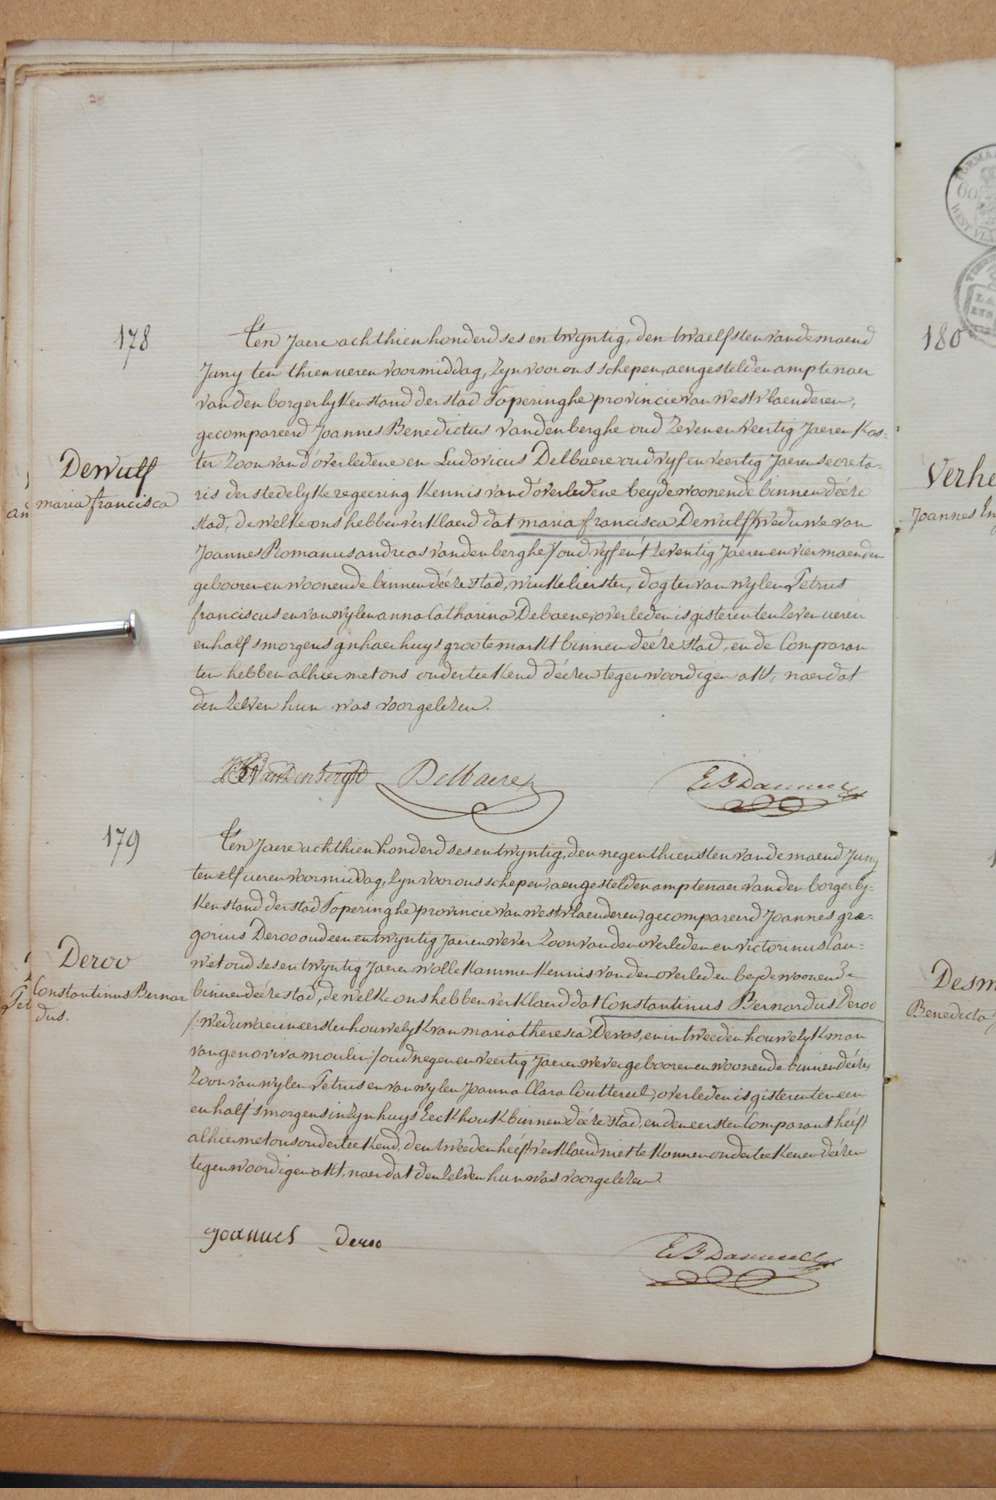 178
Dewulf
maria francisca
Ten Jaere achthien honderd ses en twyntig, den twaelfsten vande maend
Juny ten thien ueren voormiddag, Zyn voor ons schepen, aengestelden amptenaer
van den borgerlyken stand der stad Poperinghe provincie van westvlaenderen,
gecompareerd Joannes Benedictus vandenberghe oud Zeven en veertig Jaeren Kos-
ter Zoon vand'overledene en Ludovicus Delbaere oud vyf en veertig Jaeren secreta-
ris der stedelyke regeering Kennis vand'overledene beyde woonende binnen déeze
stad, de welke ons hebben verklaerd dat maria francisca Dewulf /: Weduwe van
Joannes Romanus andreas vandenberghe :/ oud vyf en t'zeventig Jaeren en vier maenden
gebooren en woonende binnen déeze stad, winkelierster, dogter van wylen Petrus
franciscus en van wylen anna Catharina Debaene, overleden is gisteren ten Zeven ueren
en half s'morgens in haer huys groote markt binnen déeze stad, en de Comparan
ten hebben alhier met ons onderteekend déezen tegenwoordigen akt, naer dat
den Zelven hun was voorgelezen.
Vandenberghe Delbaere
179
Deroo
Constantinus Bernar
dus.
Ten Jaere achthien honderd ses en twyntig, den negenthiensten vande maend Juny
ten elf ueren voormiddag, Zyn voor ons schepen, aengestelden amptenaer van den borgerly-
Ken stand der stad Poperinghe provincie van westvlaenderen, gecompareerd Joannes græ-
gorius Deroo oud een en twyntig Jaeren wever Zoon van den overleden en victorinus Cau-
wet oud ses en twyntig Jaeren wolle Kammer Kennis van den overleden beyde woonende
binnen déeze stad, de welke ons hebben verklaerd dat Constantinus Bernardus Deroo
/: weduwaer in eersten houwelyk van maria theresia Devos, en in tweeden houwelyk man
van genoveva moulin :/ oud negen en veertig Jaeren wever gebooren en woonende binnen déeze
Zoon van wylen Petrus en van wylen Joanna Clara Couttereel, overleden is gisteren ten een
en half s'morgens in Zyn huys Eeckhout binnen déeze stad, en den eersten Comparant heeft
alhier met ons onderteekend, den tweeden heeft verklaerd niet te Konnen onderteekenen déezen
tegenwoordigen akt, naer dat den Zelven hun was voorgelezen.
Joannes Deroo
180
Verhe
Joannes
Desm
Benedicta